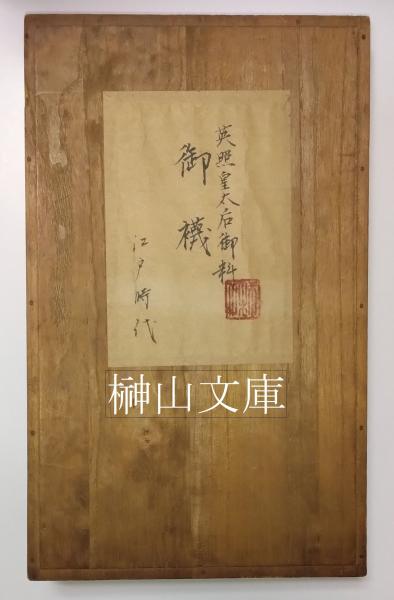 英照皇太后御料
御襪
江戸時代
榊山文庫